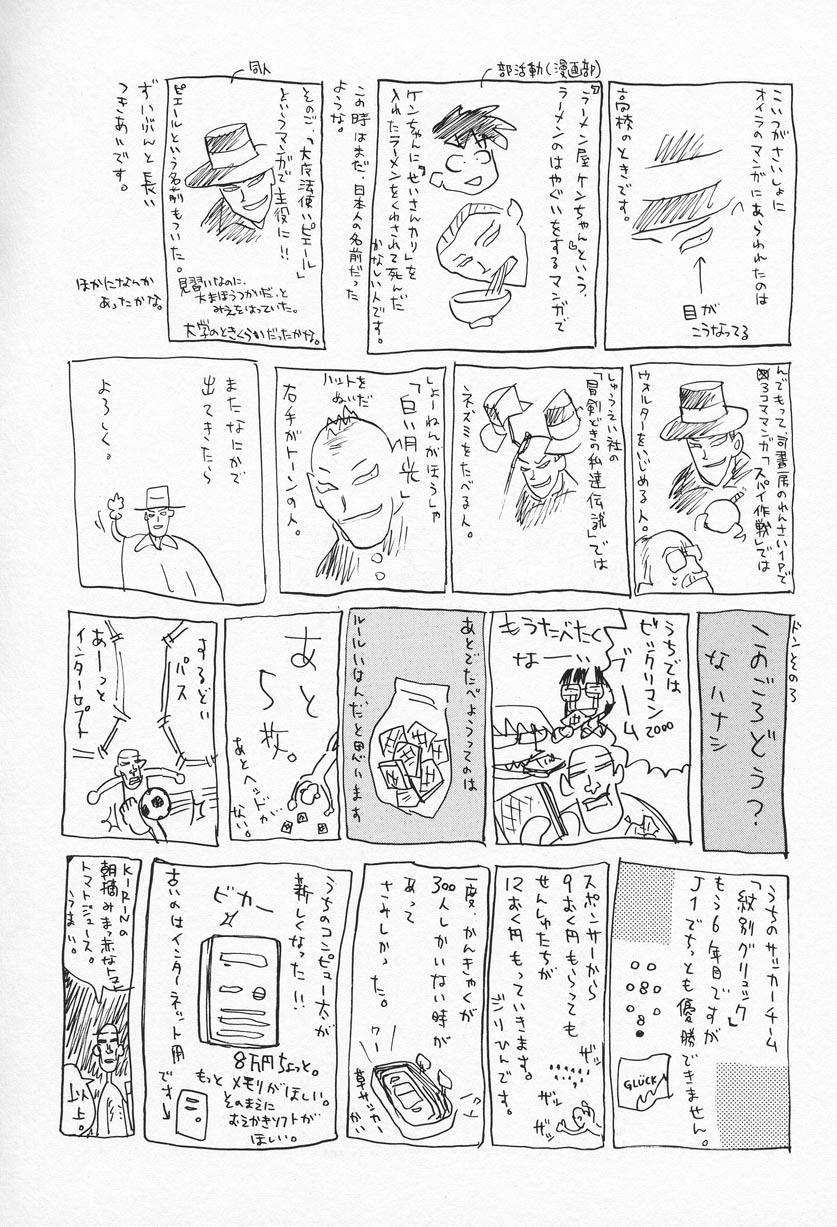 こいつがさいしょに
オイラのマンガにあらわれたのは
高校のときです。
目が
こうなってる
部活動(漫画部)
「ラーメン屋ケンちゃん」という、
ラーメンのはやぐいをするマンガで
ケンちゃんに「せいさんカリ」を
入れたラーメンをくわされて死んだ
かなしい人です。
この時はまだ、日本人の名前だった
ような。
同人
そのご、「大魔法使いピエール」
というマンガで主役に!!
ピエールという名前もついた。
見習いなのに、
大まほうつかいだ、と
みえをはっていた。
大学のときくらいだったかな。
ずいぶんと長い
つきあいです。
ほかになんか
あったかな。
んでもって、司書房のれんさい1Pで
3コママンガ「スパイ作戦」では
ウォルターをいじめる人。
しゅうえい社の
「冒剣どきの私達伝説」では
ネズミをたべる人。
しょーねんがほうしゃ
「白い月光」
ハットを
ぬいだ
右手がトーンの人。
またなにかで
出てきたら
よろしく。
ドンその3
このごろどう?
なハナシ
うちでは
ビックリマン2000
ブーム
もうたべたく
なーい
あとでたべようってのは
ルールいはんだと思います
あと
5枚。
あとヘッドが
ない。
するどい
パス
あーっと
インターセプト
うちのサッカーチーム
「紋別グリュック」
もう6年目ですが
J1でちっとも優勝できません。
GLÜCK
スポンサーから
9おく円もらっても
せんしゅたちが
12おく円もっていきます。
ジリひんです。
ザッ
ザッ
ザッ
一度、かんきゃくが
300人しかいない時が
あって
さみしかった。
ワー
草サッカー
かい
うちのコンピュー太が
新しくなった!!
ピカー
8万円ちょっと。
もっとメモリがほしい。
そのまえに
おえかきソフトが
ほしい。
古いのはインターネット用
です→
KIRINの
朝摘みまっ赤なトマト
トマトジュース。
うまい。
以上。